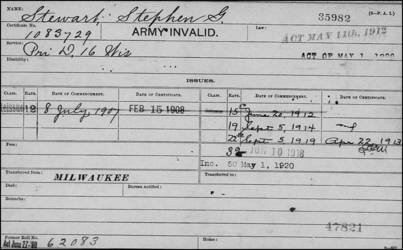 Name, Stewart Stephen G. 35982
Certificate No. 1083729 ARMY INVALID. Law: ACT MAY 11th, 1912
Service: Pri D, 16 Wis ACT OF MAY 1, 1920
Disability:
ISSUES.
CLASS. RATE. DATE OF COMMENCEMENT. DATE OF CERTIFICATE. CLASS. RATE. DATE OF COMMENCEMENT. DATE OF CERTIFICATE.
12 8 July, 1907 FEB 15 1908 15 June 20, 1912
19 Sept 5, 1914
22 Sept 5, 1919 Apr 22, 1913
Fees: 32 JUN 10 1918
Inc. 50 May 1, 1920
Transferred from: MILWAUKEE Transferred to:
Died: Bureau notified:
Remarks:
47821
Former Roll No. 62083
Act June 27-'90